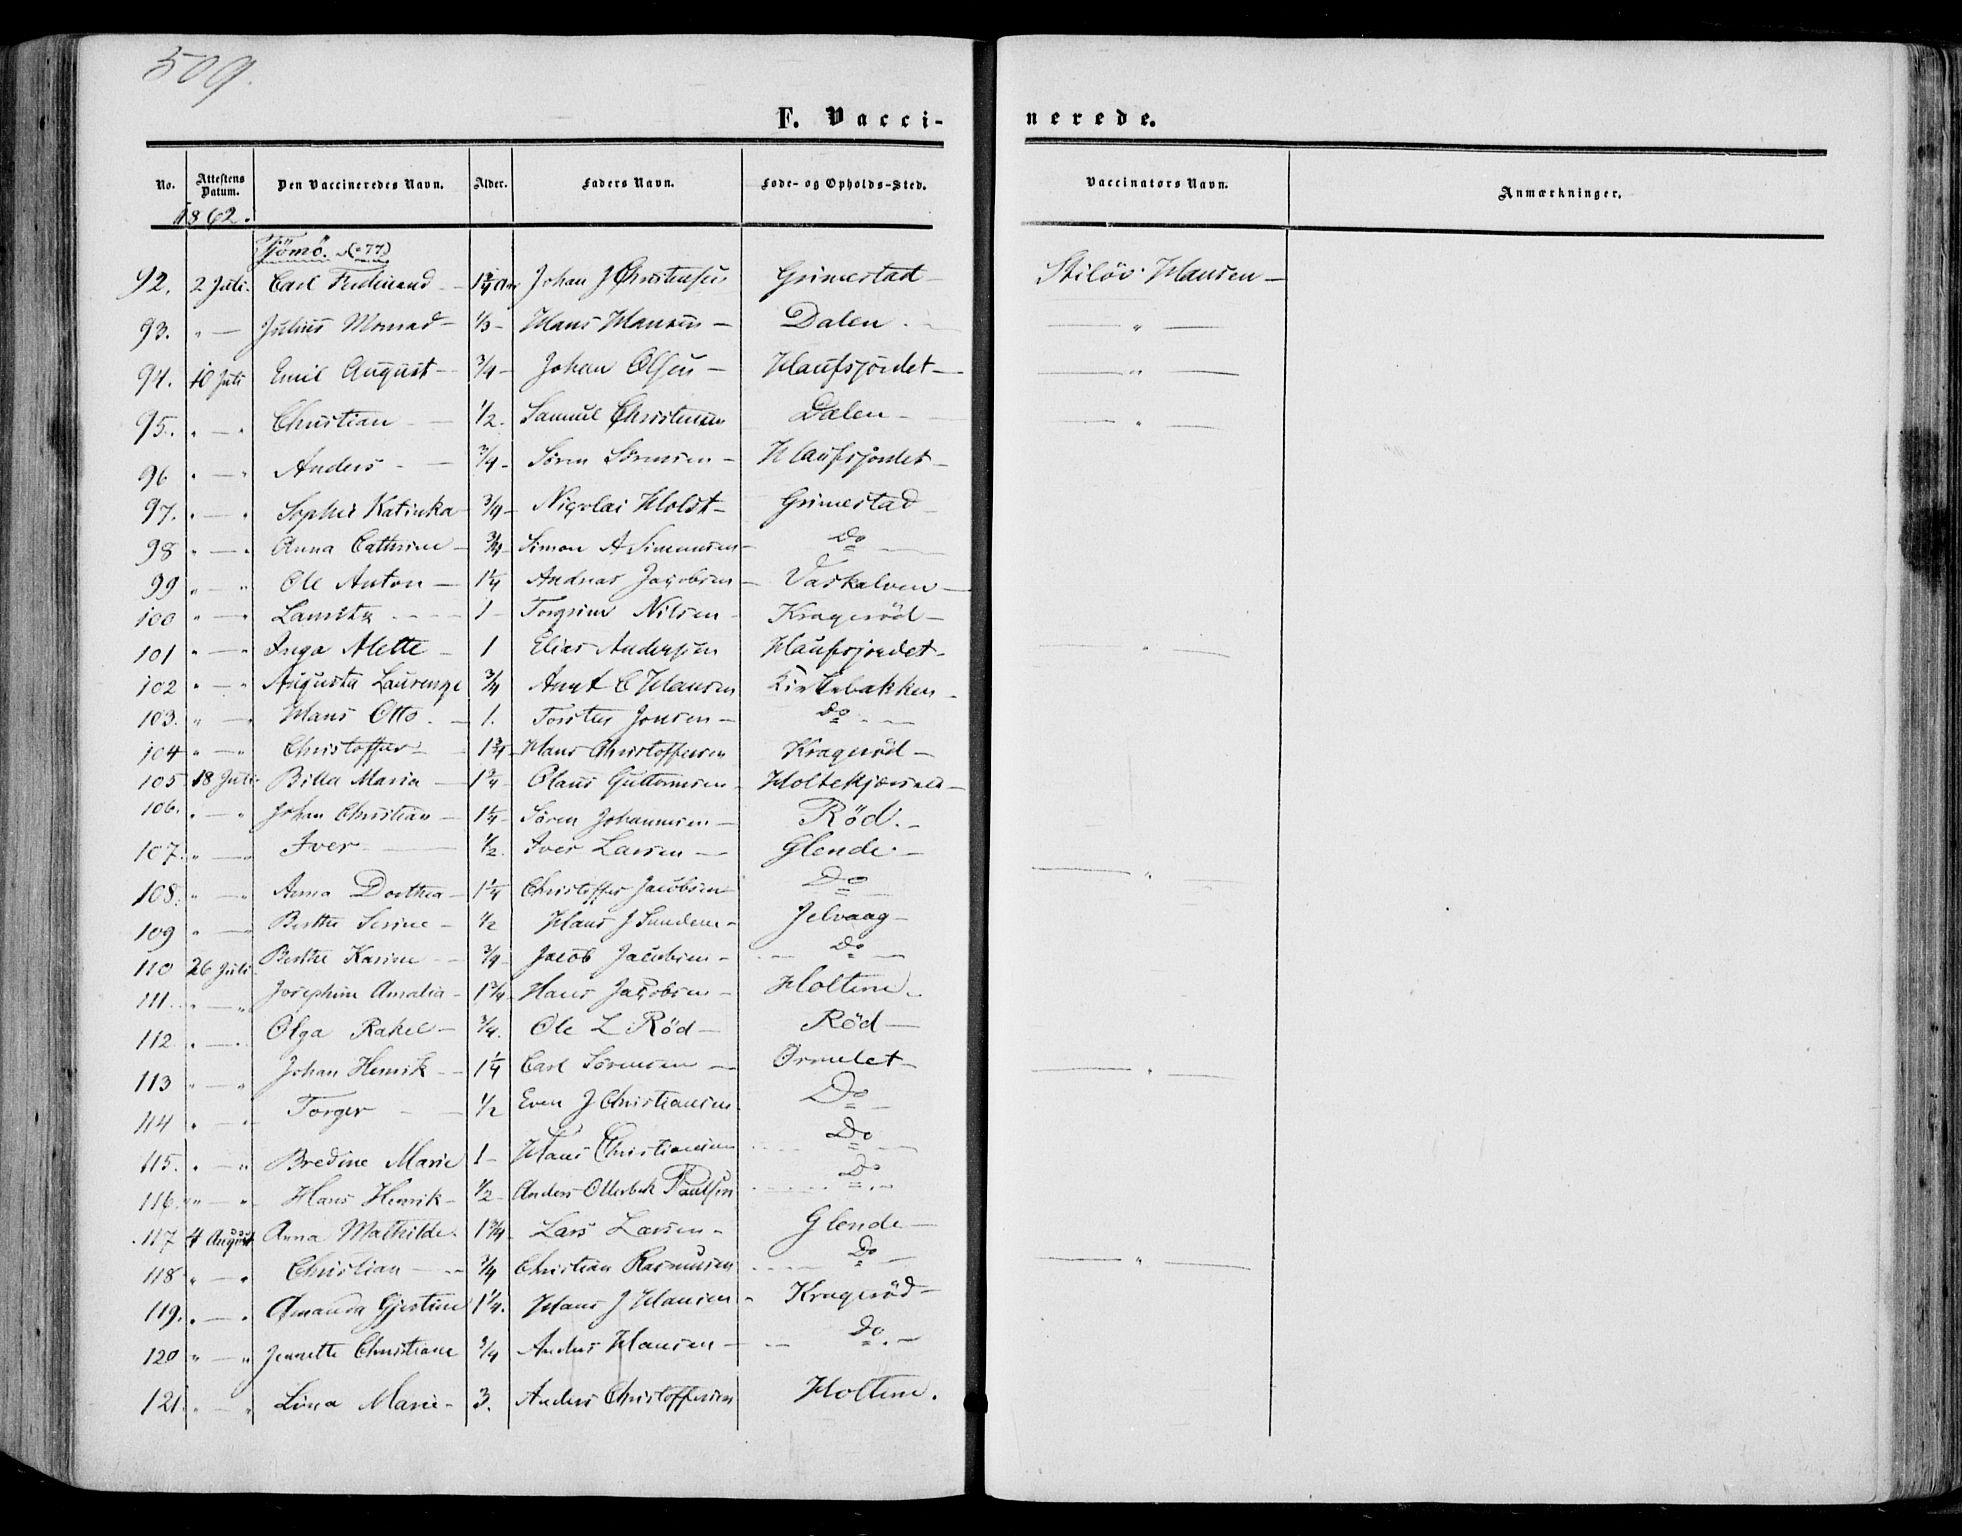 509.
F. Vaccinerede.
No. Attestens Datum. Den Vaccineredes Navn. Alder. Faders Navn. Føde- og Opholds-Sted. Vaccinators Navn. Anmærkninger.
1862.
Tjömö.
92. 2 Juli Carl Ferdinand 1¾ Johan J Christensen Grimestad Hansen
93. " — Julius 1/3 Hans Hansen Dalen "
94. 10 Juli Emil August ¾ Johan Olsen Haufsjordet "
95. " — " Christian ½ Samuel Dalen "
96 " — " Anders ¾ Sören Sörensen Haufsjordet
97. " — " Sophie Katinka ¾ Nicolai Holdt Grimestad
98 " — " Anna Cathrine ¾ Simon A Simonsen Do
99 " — " Ole Anton 1¼ Andreas Jacobsen Vaskalven
100 " — " Lauritz 1 Torgrim Nilsen Kragerød
101 " — " Inga Mette 1 Elias Andersen Haufsjordet "
102 " — " Augusta ¾ C Hansen Kirkebakken
103. " — " Hans Otto 1. Torsten Jonsen Do
104 " — " Christoffer 1¾ Hans Christoffersen Kragerød
105 18 Juli Maria 1¾ Olaus Guttormsen
106. " — " Johan Christian 1¼ Sören Johannesen Röd
107. " — " Iver ½ Iver Larsen Glende
108. " — " Anna Dorthea 1¼ Christoffer Jacobsen Do "
109 " — Berthe Serine ½ Hans J Jelvaag
110 26 Juli Berthe Karine ¾ Jacob Jacobsen Do
111. " — " Josephine Amalia 1¾ Hans Jacobsen Holtene
112 " — " Olga Rakel ¾ Ole L Röd Röd
113 " — " Johan Henrik 1¼ Carl Sörensen Ormelet "
114 " — " Torger ½ Even J Christiansen Do
115. " — " Bredine Marie 1 Hans Christiansen Do
116 " — " Hans Henrik ½ Anders Otterbek Paulsen Do
117 4 August Anna Mathilde 1¾ Lars Larsen Glende
118 " — " Christian ¾ Christian Rasmusen Do "
119. " — " Amanda Gjertine 1¼. Hans J Hansen Kragerød
120 " — " Jennette Christiane ¾ Anders Hansen Do
121. " — " Lina Marie 3. Anders Christoffersen Holtene.